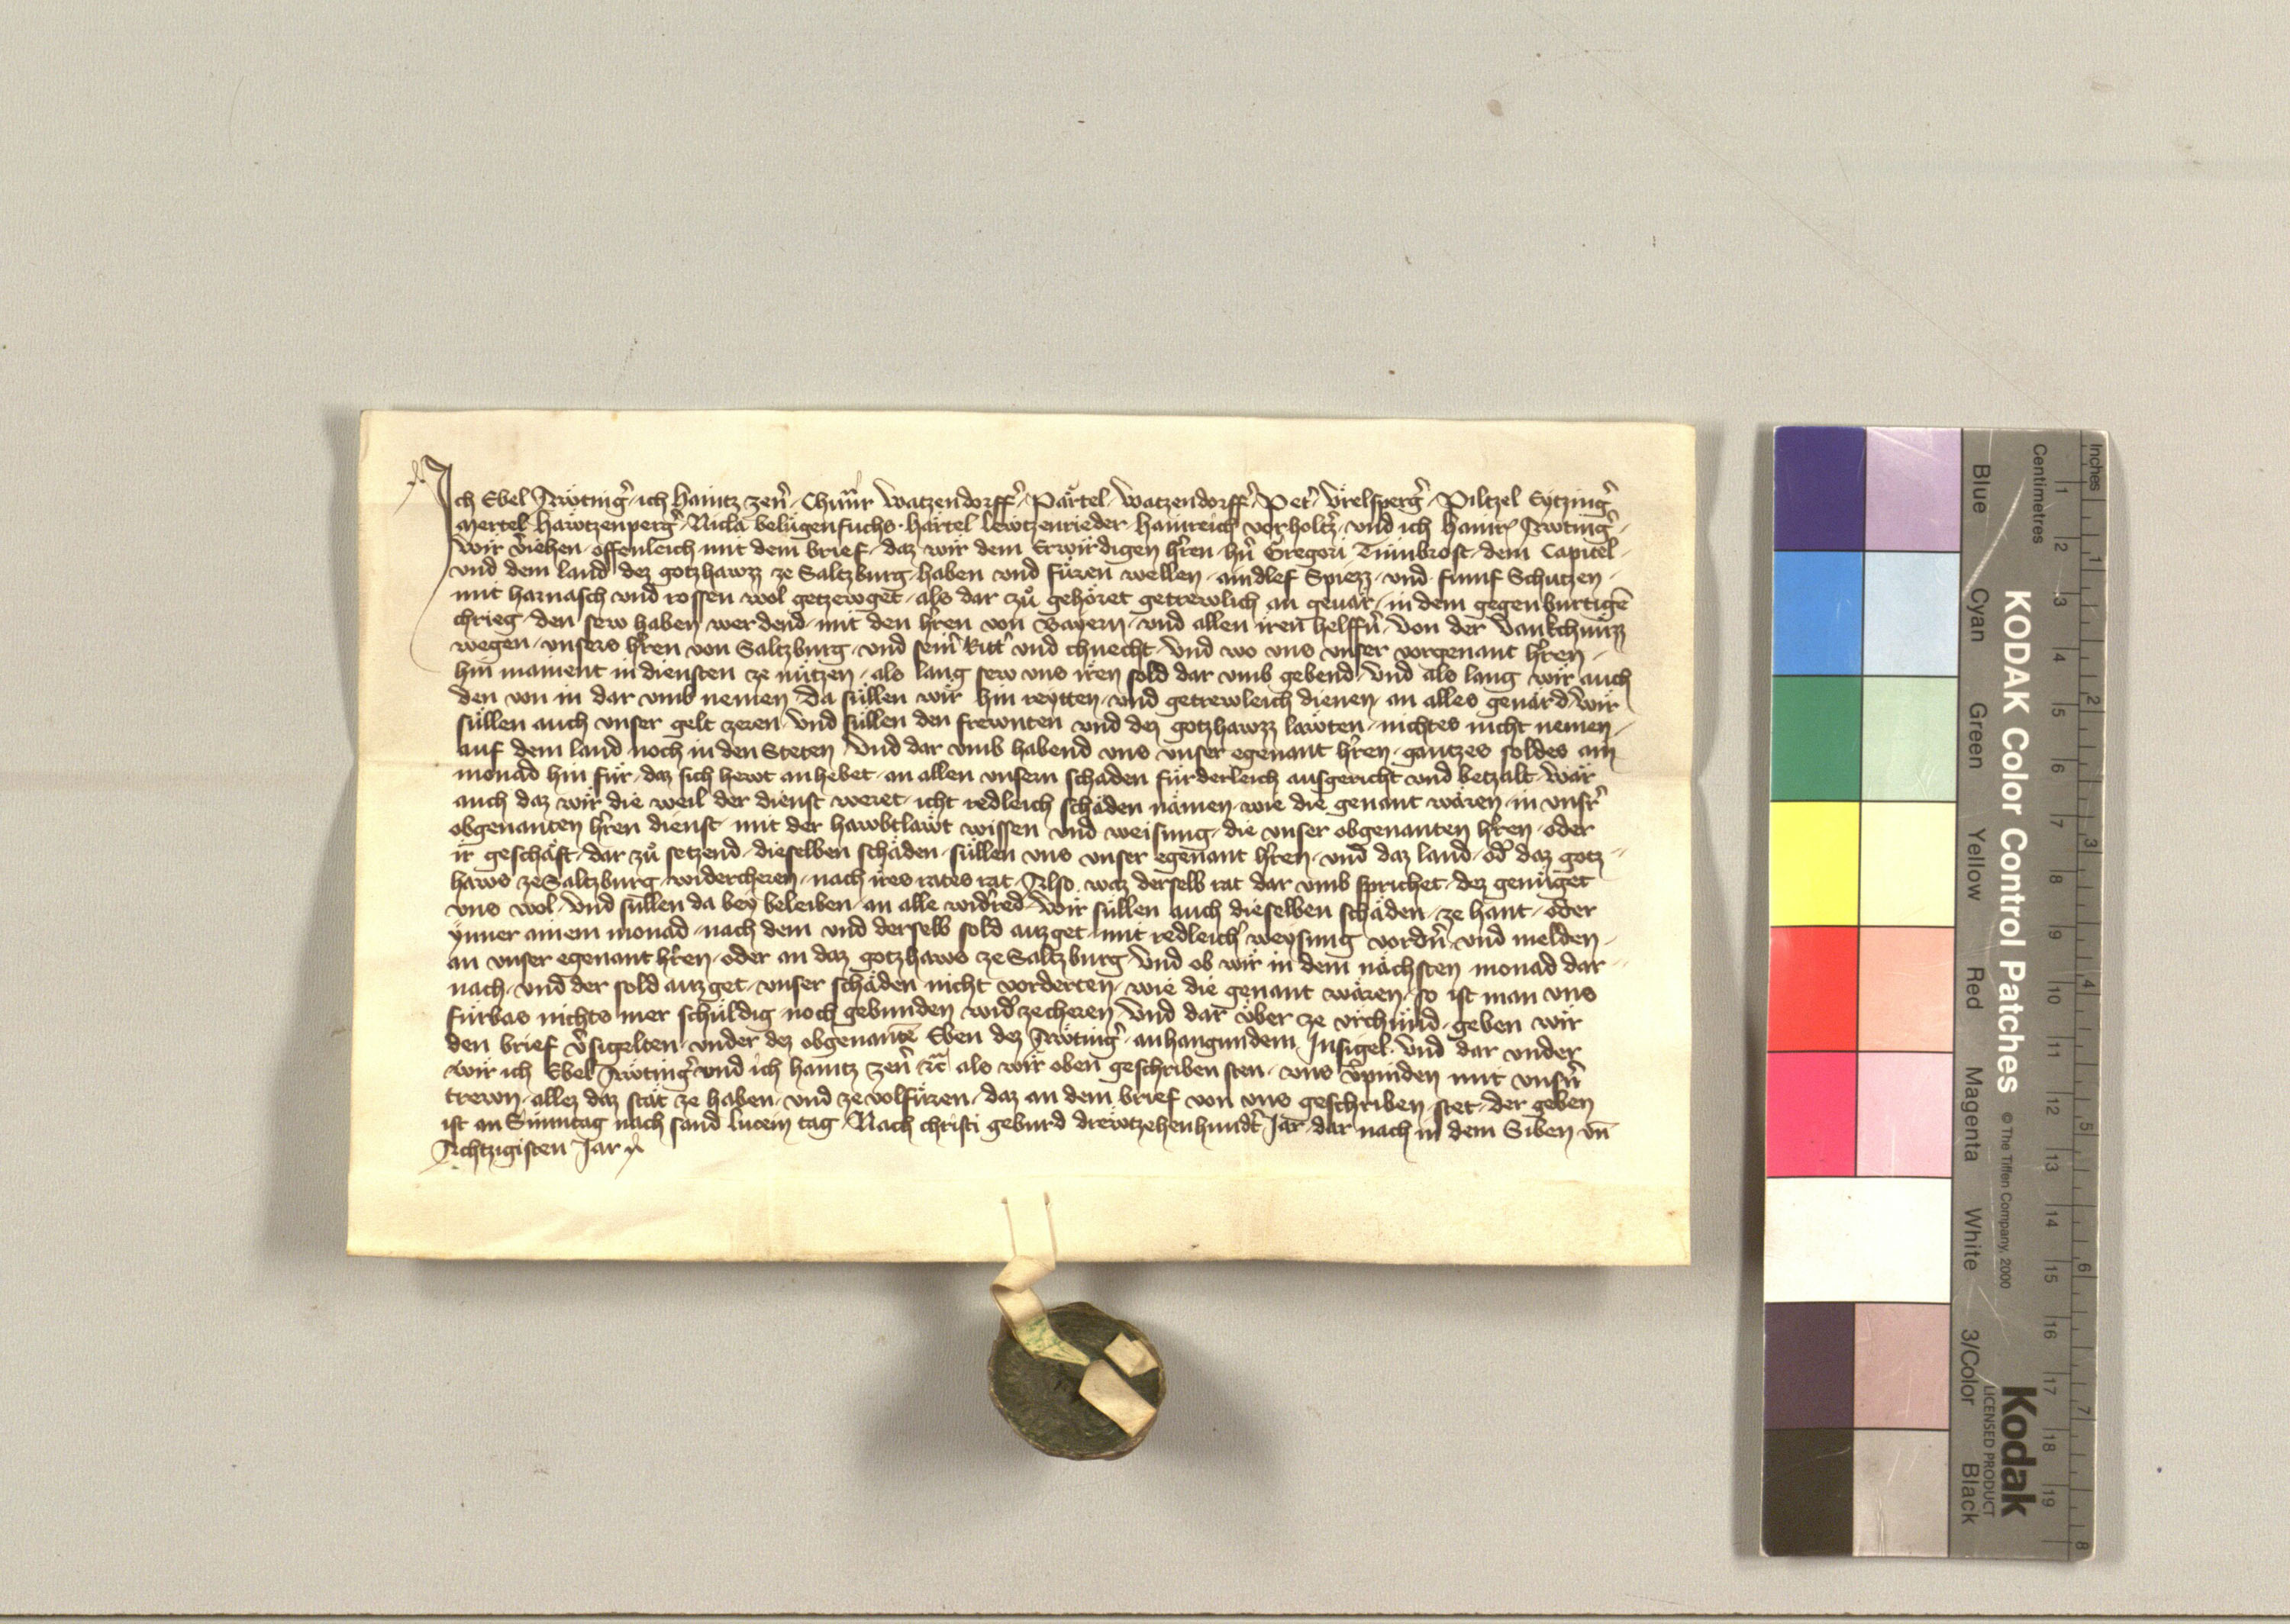 Ich Ebel Trötingˀ ich haintz zenˀ Chunr Watzendorffˀ Pärtel Watzendorffˀ Petˀ Vrelspergˀ Piltzel Eytzingˀ
Mertel Hawtzenpergˀ Nicla belugenfuchs Härtel Lewtzenrieder Hainreich vorholtzˀ und ich hainr Trotingˀ
Wir vˀiehen offenleich mit dem brief daz wir dem Erwirdigen hˀren hˀn Gregori dem Capitel
und dem land dez gotzhawzz ze Saltzburg haben und füren wellen aindlef Spiezz und funf Schutzen
mit harnasch und rossen wol getzewget als dar zů gehöret getrewlich an geuär in dem gegenburtigē
chrieg den sew haben werdend mit den hˀren von Bayern und allen iren helffˀn von der vankchnüzz
wegen unsers hˀren von Saltzburg und seinˀ Rittˀ und chnecht und wo uns unser vorgenant hˀren
hin mainent in diensten ze nützen als lang sew uns iren sold dar umb gebend und als lang wir auch
den von in dar umb nemen da süllen wir hin reytten und getrewleich dienen an alles geuärd wir
süllen auch unser gelt zeren und süllen den frewnten und dez gotzhawzz läwten nichtes nicht nemen
auf dem land noch in den Steten Und dar umb habend uns unser egenant hˀren gantzes soldes ain
monad hin für daz sich hewt anhebet an allen unsern schaden fürderleich ausgericht und betzalt wär
auch daz wir die weil der dienst weret icht redleich schäden nämen wie die genant wären in unsrˀ
obgenanten hˀren dienst mit der hawbtläwt wissen und weisung die unser obgenanten hˀren oder
ir geschäft dar zů setzend dieselben schäden süllen uns unser egenant hˀren und daz land odˀ daz gotz
haws ze Saltzburg widercheren nach ires rates rat Also waz derselb rat dar umb sprichet dez genüget
uns wol und süllen da bey beleiben an alle widˀred Wir süllen auch dieselben schäden ze hant oder
ynner ainem monad nach dem und derselb sold auzget mit redleichˀ weysung vordˀn und melden
an unser egenant hˀren oder an daz gotzhaws ze Saltzburg Und ob wir in dem nächsten monad dar
nach und der sold auzget unser schäden nicht vorderten wie die genant wären so ist man uns
fürbas nichts mer schuldig noch gebunden widˀzecheren Und dar über ze urchünd geben wir
den brief vˀsigelten under dez obgenantē Eben dez Trötingˀ anhangundem Insigel und dar under
wir ich Ebel Trötingˀ und ich haintz zenˀ etc als wir oben geschriben sten uns vˀpinden mit unsˀn
trewn allez daz stät ze haben und ze volfüren daz an dem brief von uns geschriben stet der geben
ist an Sunntag nach sand lucein tag Nach christi geburd drewtzehenhundˀt Iar dar nach in dem Siben un̄
Achtzigisten Iar
KODAK Color Control Patches
© The Tiffen Company, 2000
Kodak
LICENSED PRODUCT
Blue Cyan Green Yellow Red Magenta White 3/Color Black
Inches 1 2 3 4 5 6 7 8
Centimetres 1 2 3 4 5 6 7 8 9 10 11 12 13 14 15 16 17 18 19